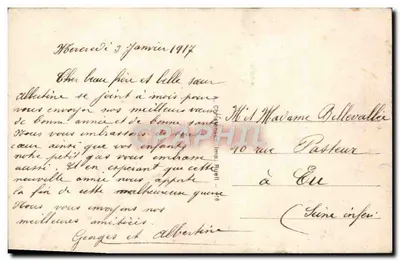 Mercredi 3 Janvier 1917
Cher beau frère et belle sœur
Albertine se joint à mois pour
vous envoyer nos meilleurs vœux
de bonne année et de bonne santé
Nous vous embrassons de
cœur ainsi que vos enfants
notre petit gas vous embrasse
aussi. Et en esperant que cette
nouvelle année nous apporte
la fin de cette malheureuse guerre
Nous vous envoyons nos
meilleures amitiées.
Georges et Albertine
M et Madame Bellevallée
10 rue Pasteur
à Eu
(Seine inferi
delcampe